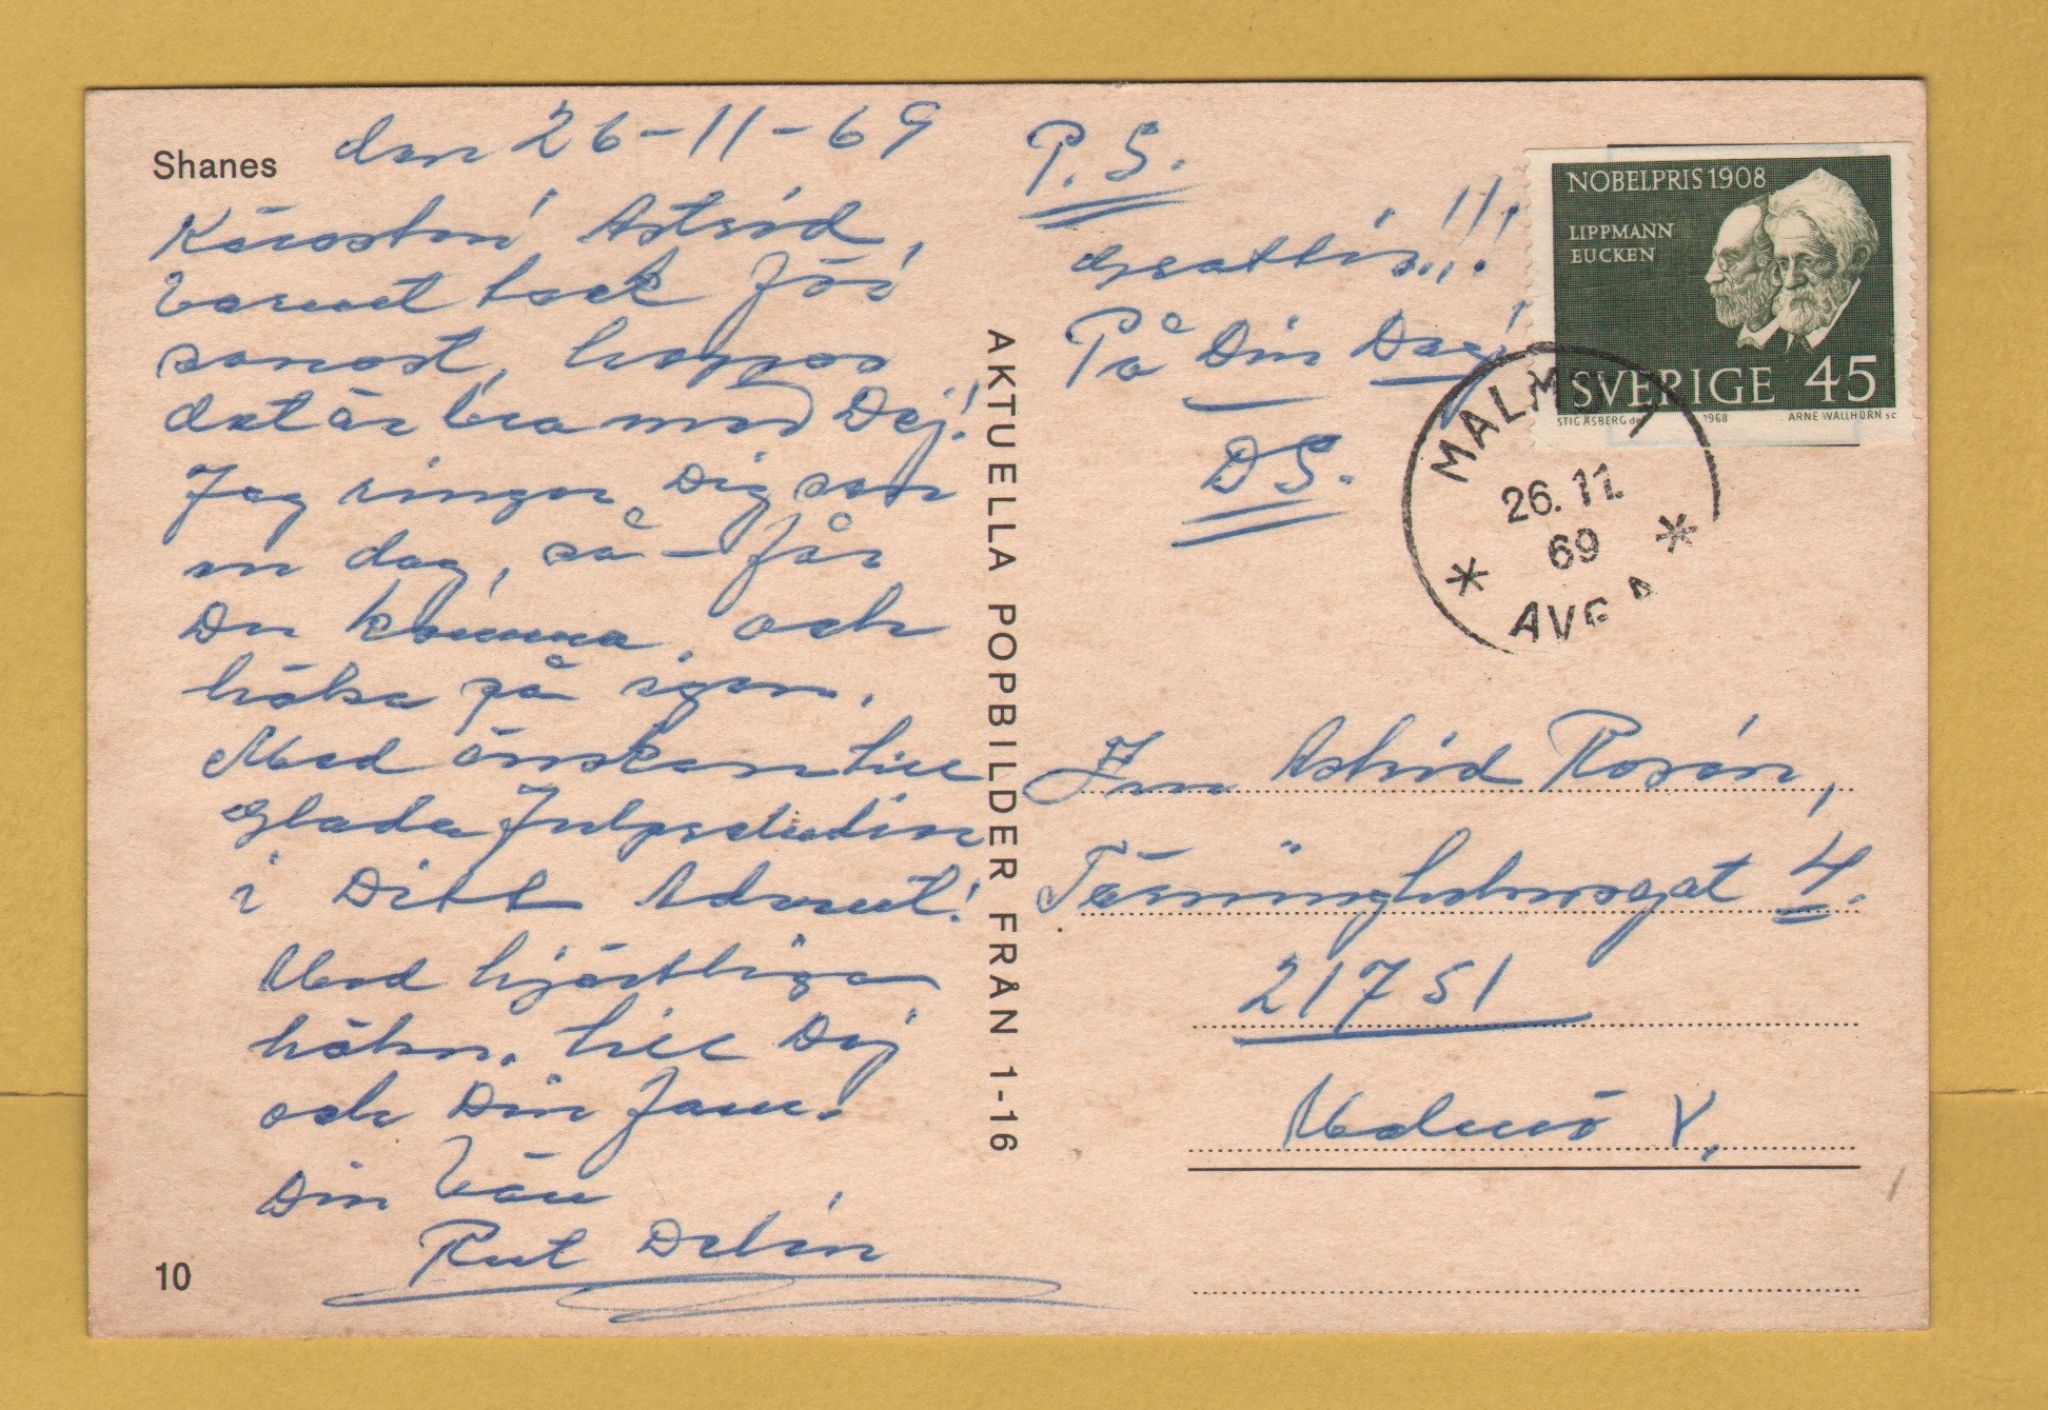 Shanes
den 26-11-69
Käraste Astrid,
Varmt tack för
senast, hoppas
det är bra med Dej!
Jag ringer Dig som
en dag, så - får
Du komma, och
hälsa på igen.
Med önskan till
Glada Julpreludier
i Ditt Advent!
Med hjärtliga
hälsn. till Dej
och Din fam.
Din Vän
Rut Delin
10
AKTUELLA POPBILDER FRÅN 1-16
P.S.
Grattis!!!
På Din Dag!
DS.
NOBELPRIS 1908
LIPPMANN
EUCKEN
SVERIGE 45
STIG ÅSBERG del 1968 ARNE WALLHORN SC
MALMÖ 1
26.11.
69
AVG
Fru Astrid Rosén,
Tärningholmsgat 4.
21751
Malmö V.